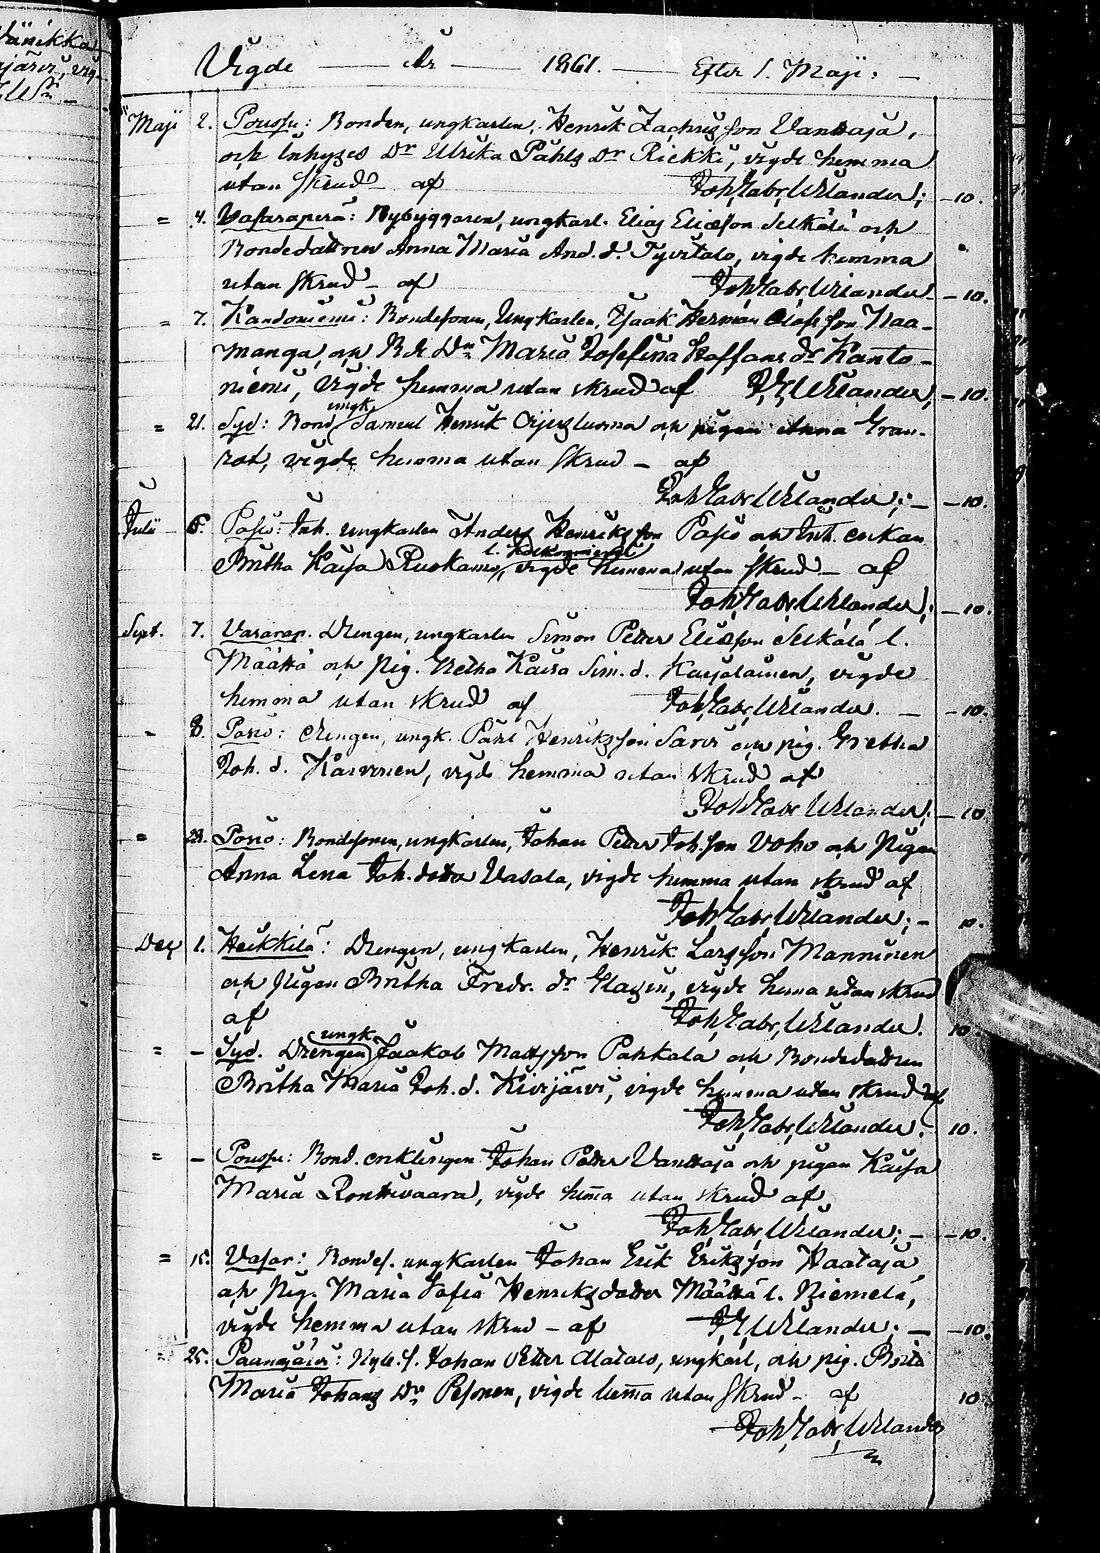 Vigde — År — 1861. — Efter 1. Maji: —
Maji 2. Poussu: Bonden, ungkarlen, Henrik Zachrisson Vanttaja,
och Inhyses Dr Ulrika Påhls Dr Riekki, vigde hemma
utan skrud af Joh, Gabr, Wlander; — 10.
= 4. Vasaraperä: Nybyggaren, ungkarl. Elias Eliasson Selkälä och
Bondedattren Anna Maria And. d. Tyvitalo, vigde hemma
utan skrud — af Joh, Gabr, Wlander — 10.
= 7. Kandoniemi: Bondesonen, Ungkarlen, Isaak Herman Olofsson Haa-
manga, och B. Dn Maria Josefina Staffans dr Kanto-
niemi, vigde hemma utan skrud af J, G, Wlander, — 10.
= 21. Syd: Bond. ungk. Samuel Henrik och pigan Anna Gran-
rot, vigde hemma utan skrud — af
Joh, Gabr, Wlander; — 10.
Julii 6. Posio: Inh. ungkarlen Anders Henriksson Posio och Inh. enkan
Britha Kaisa Ruokamo, l. vigde hemma utan skrud — af
Joh, Gabr, Wlander; — 10.
Sept. 7. Vasarap. Drengen, ungkarlen Simon Petter Eliasson Selkälä l.
Määttä och pig. Gretha Kaisa Sim. d. Karjalainen, vigde
hemma utan skrud af Joh, Gabr, Wlander. — 10.
„ 8. Posio: drengen, ungk. Påhl Henriksson Sarvi och pig. Gretha
Joh. d. Karvonen, vigde hemma utan skrud af
Joh, Gabr, Wlander; — 10
= 28. Posio: Bondesonen, ungkarlen, Johan Petter Joh.son och Pigan
Anna Lena Joh. dotter Vasala, vigde hemma utan skrud af
Joh, Gabr, Wlander; — 10.
Dec 1. Heikkilä: Drengen, ungkarlen, Henrik Larsson Manninen
och Pigan Britha Fredr. dr vigde hema utan skrud
af Joh, Gabr, Wlander. 10.
= — Syd. Drengen ungk. Jaakob Mattsson Pahkala och Bondedattren
Britha Maria Joh. d. Kivijärvi, vigde hemma utan skrud af
Joh, Gabr, Wlander. 10.
= — Poussu: Bond. enklingen Johan Petter Vanttaja och pigan Kaisa
Maria Ronttivaara, vigde hema utan skrud af
Joh, Gabr, Wlander; — 10.
= 15. Vasar: Bondes. ungkarlen Johan Erik Eriksson Haataja
och Pig. Maria Sofia Henriksdotter Määttä l. Niemelä,
vigde hemma utan skrud — af J, G, Wlander; — 10.
25. Paunajärvi: Nyb. s. Johan Petter Alatalo, ungkarl, och pig. Brita
Maria Johans Dr Pesonen, vigde hema utan skrud — af 10.
Joh, Gabr, Wlander